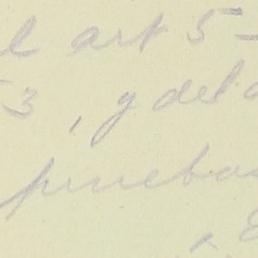 l art 5-
53, y del
pruebas